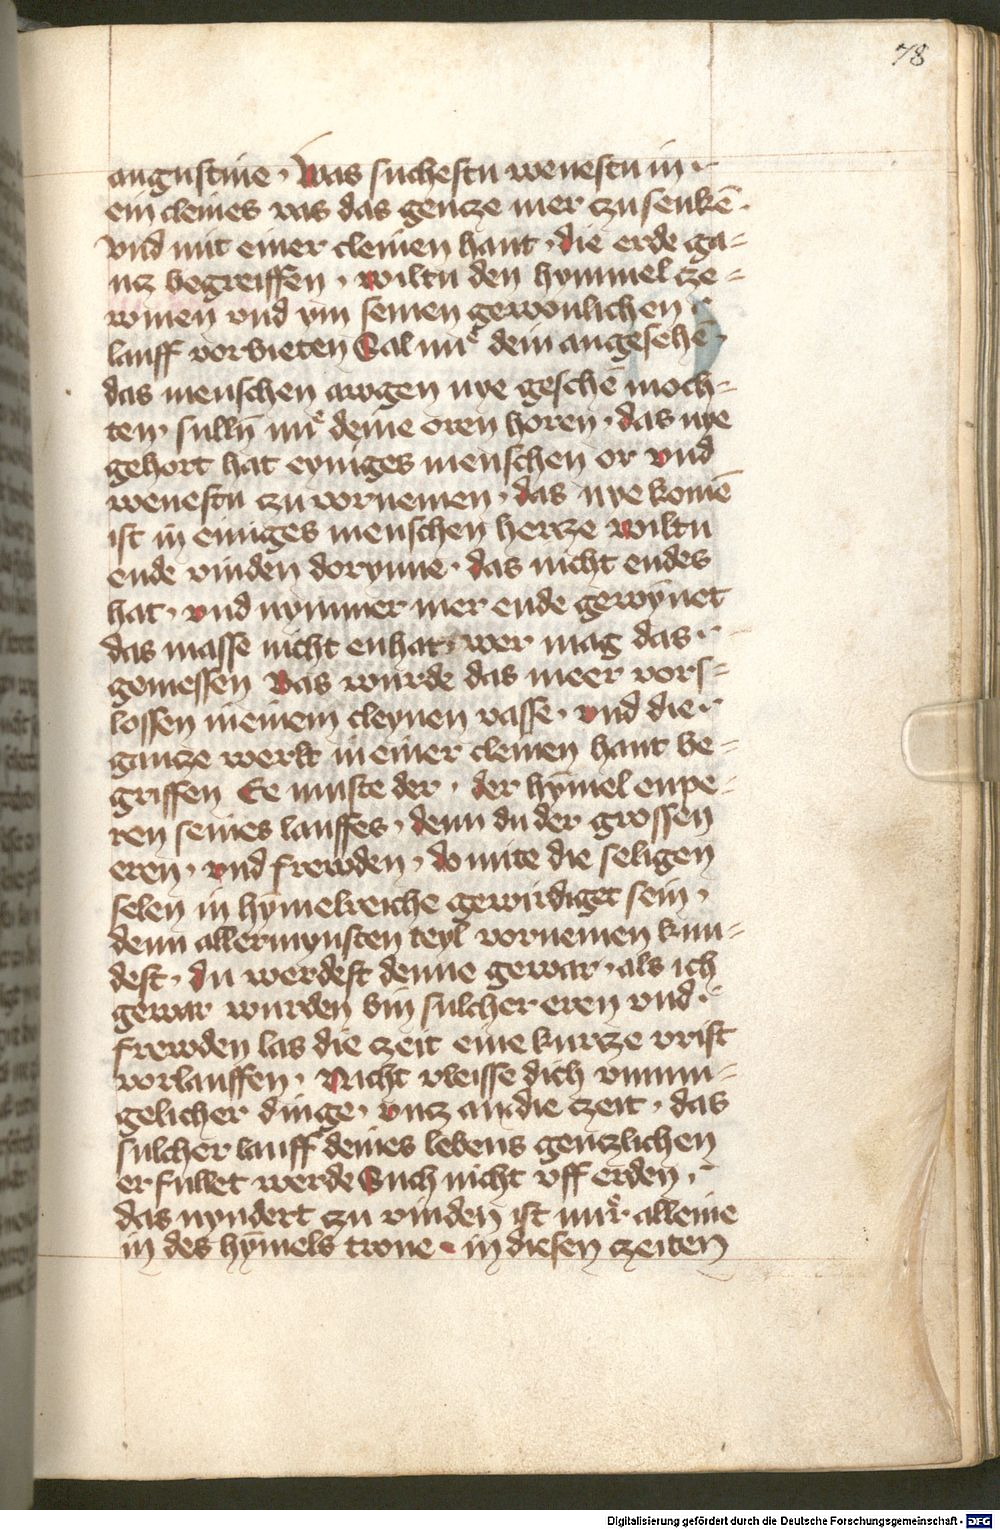 78
augustine · Was suchestu wenestu in ·
ein cleines vas das gencze mer czu senkē ·
vnd mit einer cleinen hant · die erde ga-
ncz begreiffen · wiltu den hymmel cze-
winen vnd ym seinen gewonlichen
lauff vorbieten Sal nu dein angesehē ·
das menschen awgen nye geschē moch-
ten · sullū nu deine oren horen · das nye
gehort hat eyniges menschen or vnd
wenestu czu vornemen · das nye komē
ist in einiges menschen hercze wiltu
ende vinden dorynne · das nicht endes
hat · vnd nymmer mer ende gewȳnet
das masse nicht enhat · wer mag das ·
gemessen Das wurde das meer vors-
lossen in einem cleynen vasse · vnd die ·
gancze werlt in einer cleinen hant be-
griffen Ee muste der · der hȳmel enpe-
ren seines lauffes · denn du der grossen
eren · vnd frewden · do mite die seligen
selen in hymelreiche gewirdiget sein ·
denn allermynsten teyl vornemen kun-
dest · du werdest denne gewar · als ich
gewar wurden bin sulcher eren vnd ·
frewden las die czeit eine kurcze vrist
vorlauffen · Nicht vleisse dich vnmu-
gelicher dinge · vncz an die czeit · das
sulcher lauff deines lebens genczlichen
erfullet werde Such nicht vff erden ·
das nyndert czu vinden ist nur alleine
in des hȳmels trone · in diesen czeiten
Digitalisierung gefördert durch die Deutsche Forschungsgemeinschaft - DFG